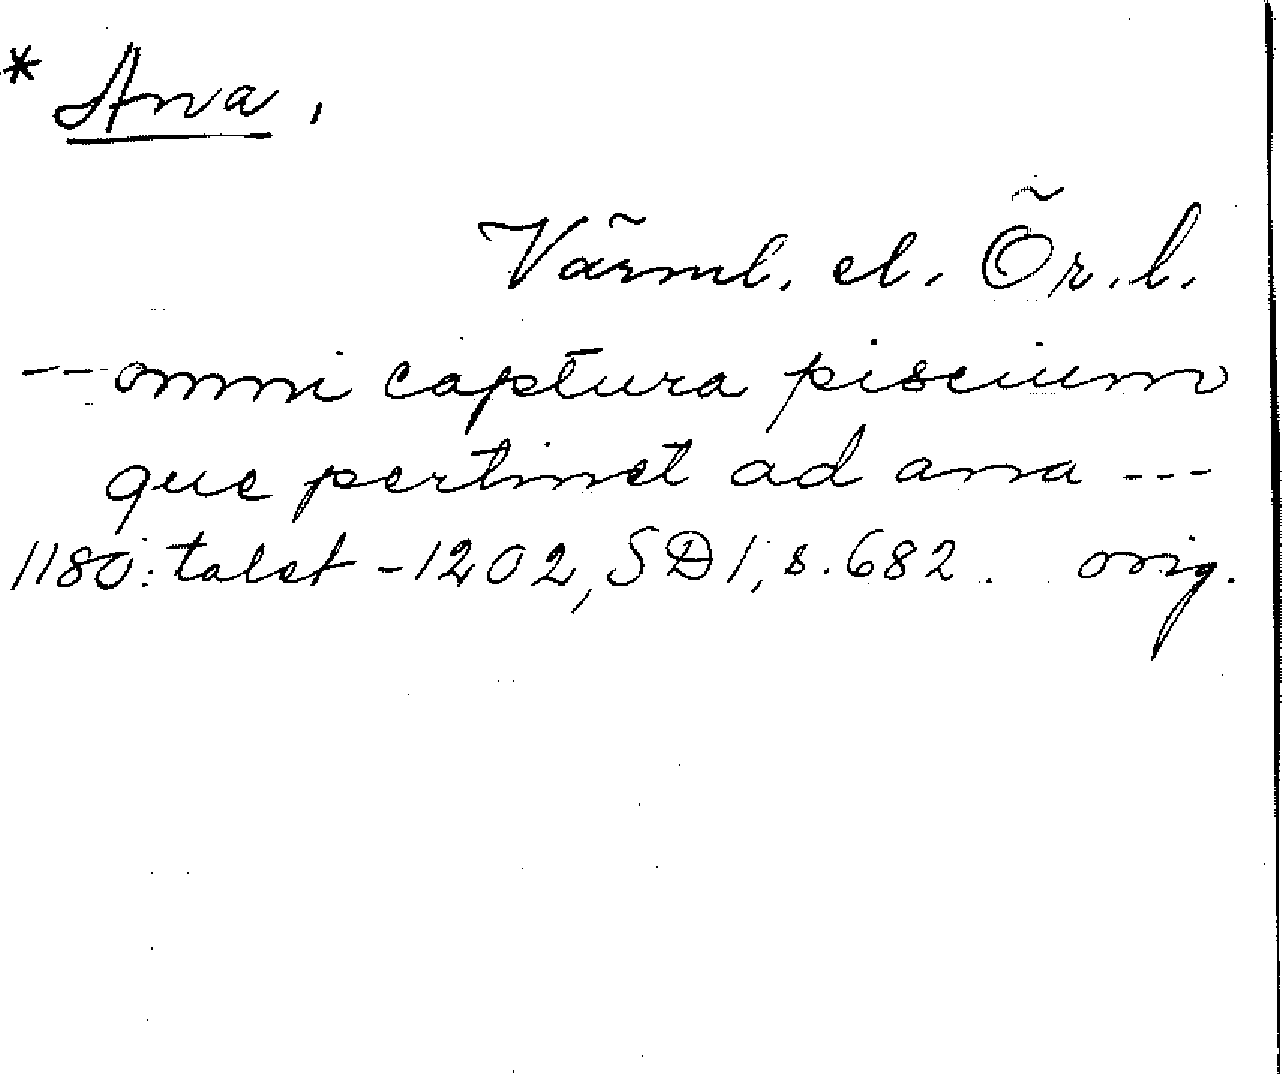 * Ana,
Värml. el. Ör. l.
--omni captura piscium
que pertinet ad ana ---
1180: talet -1202, SD1, s. 682. orig.